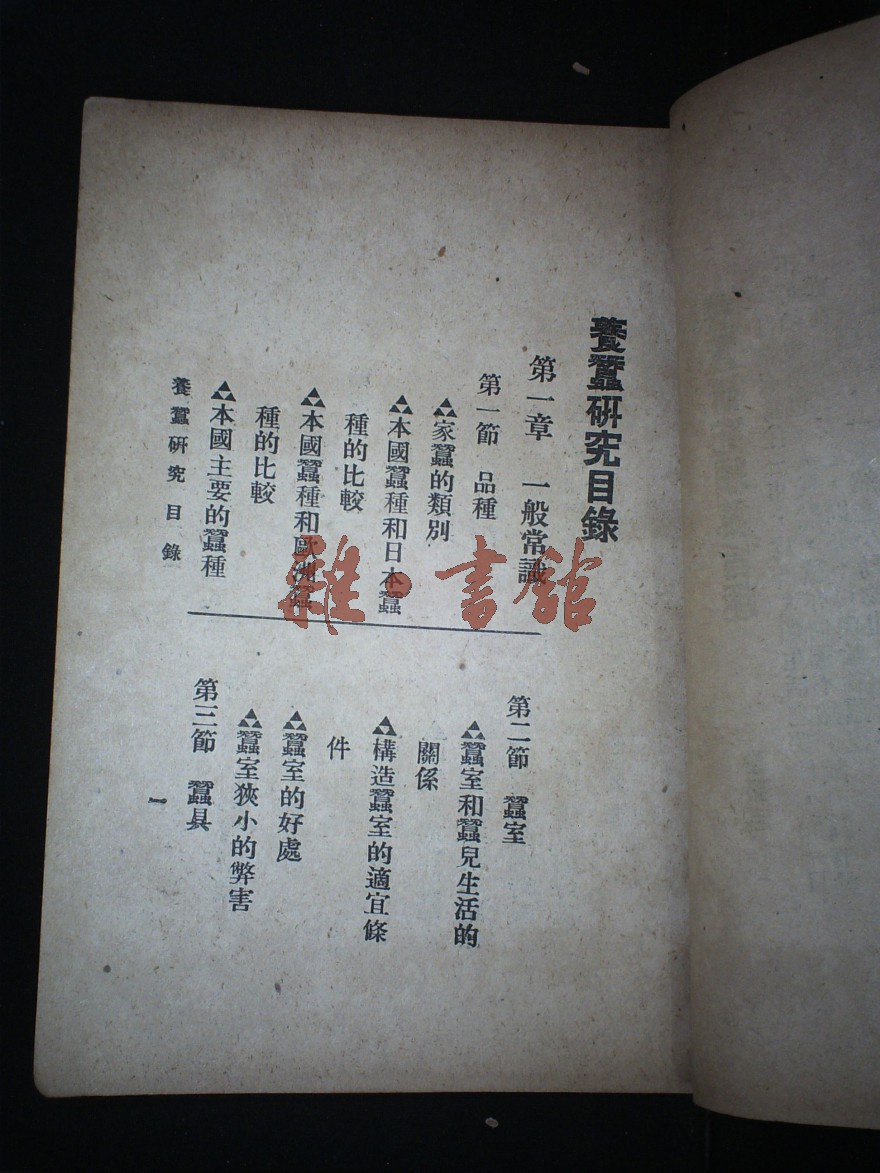 養蠶研究目錄
第一章 一般常識
第一節 品種
家蠶的類別
本國蠶種和日本蠶
種的比較
本國蠶種和歐洲蠶
種的比較
本國主要的蠶種
第二節 蠶室
蠶室和蠶兒生活的
關係
構造蠶室的適宜條
件
蠶室的好處
蠶室狹小的弊害
第三節 蠶具
養蠶研究 目錄
一
雜·書館